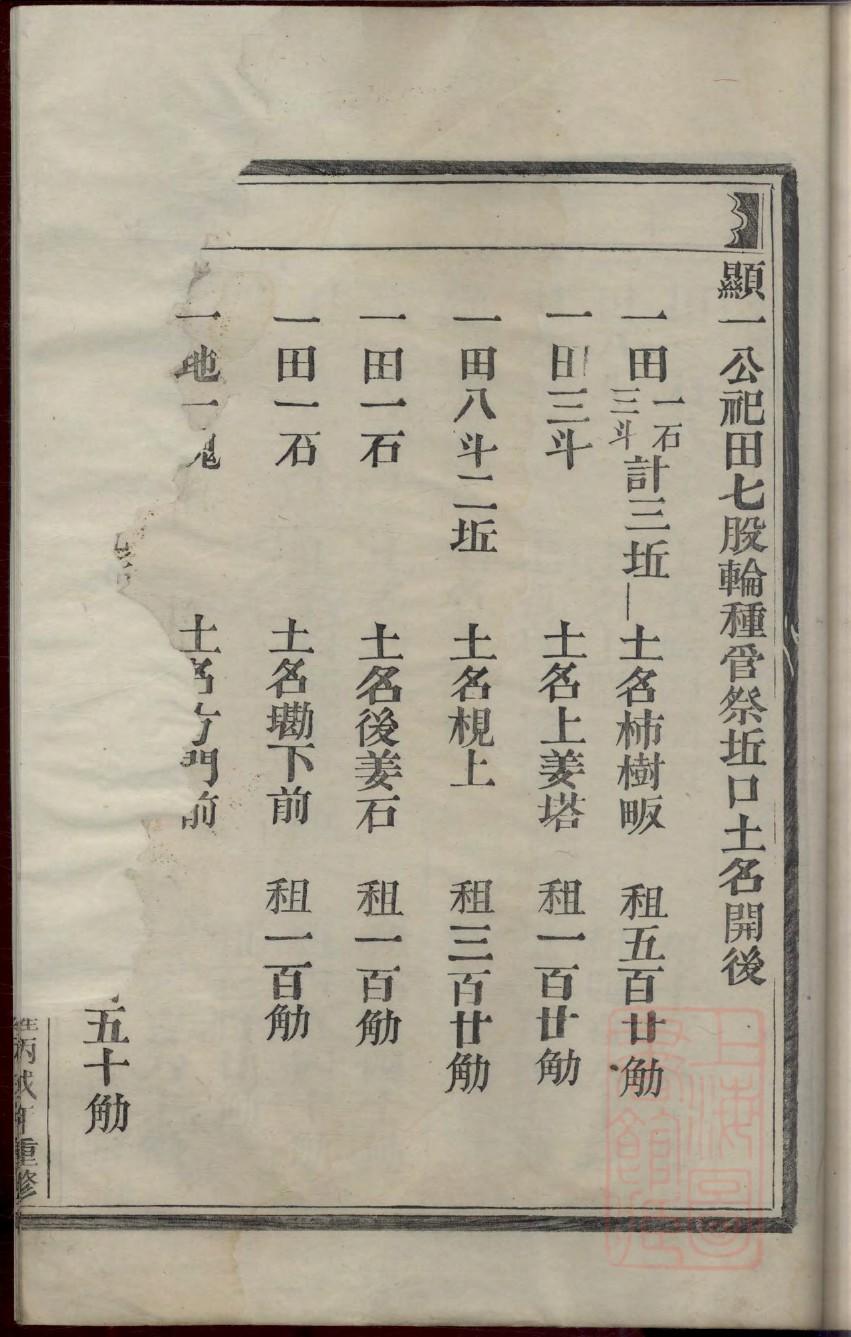 顯一公祀田七股輪種管祭坵口土名開後
一田一石三斗計三坵 土名柿樹畈 租五百廿觔
一田三斗 土名上姜塔 租一百廿觔
一田八斗二坵 土名梘上 租三百廿觔
一田一石 土名後姜石 租一百觔
一田一石 土名墈下前 租一百觔
一地一塊 土名 門前
五十觔
丙戌年重修
上海圖書館藏